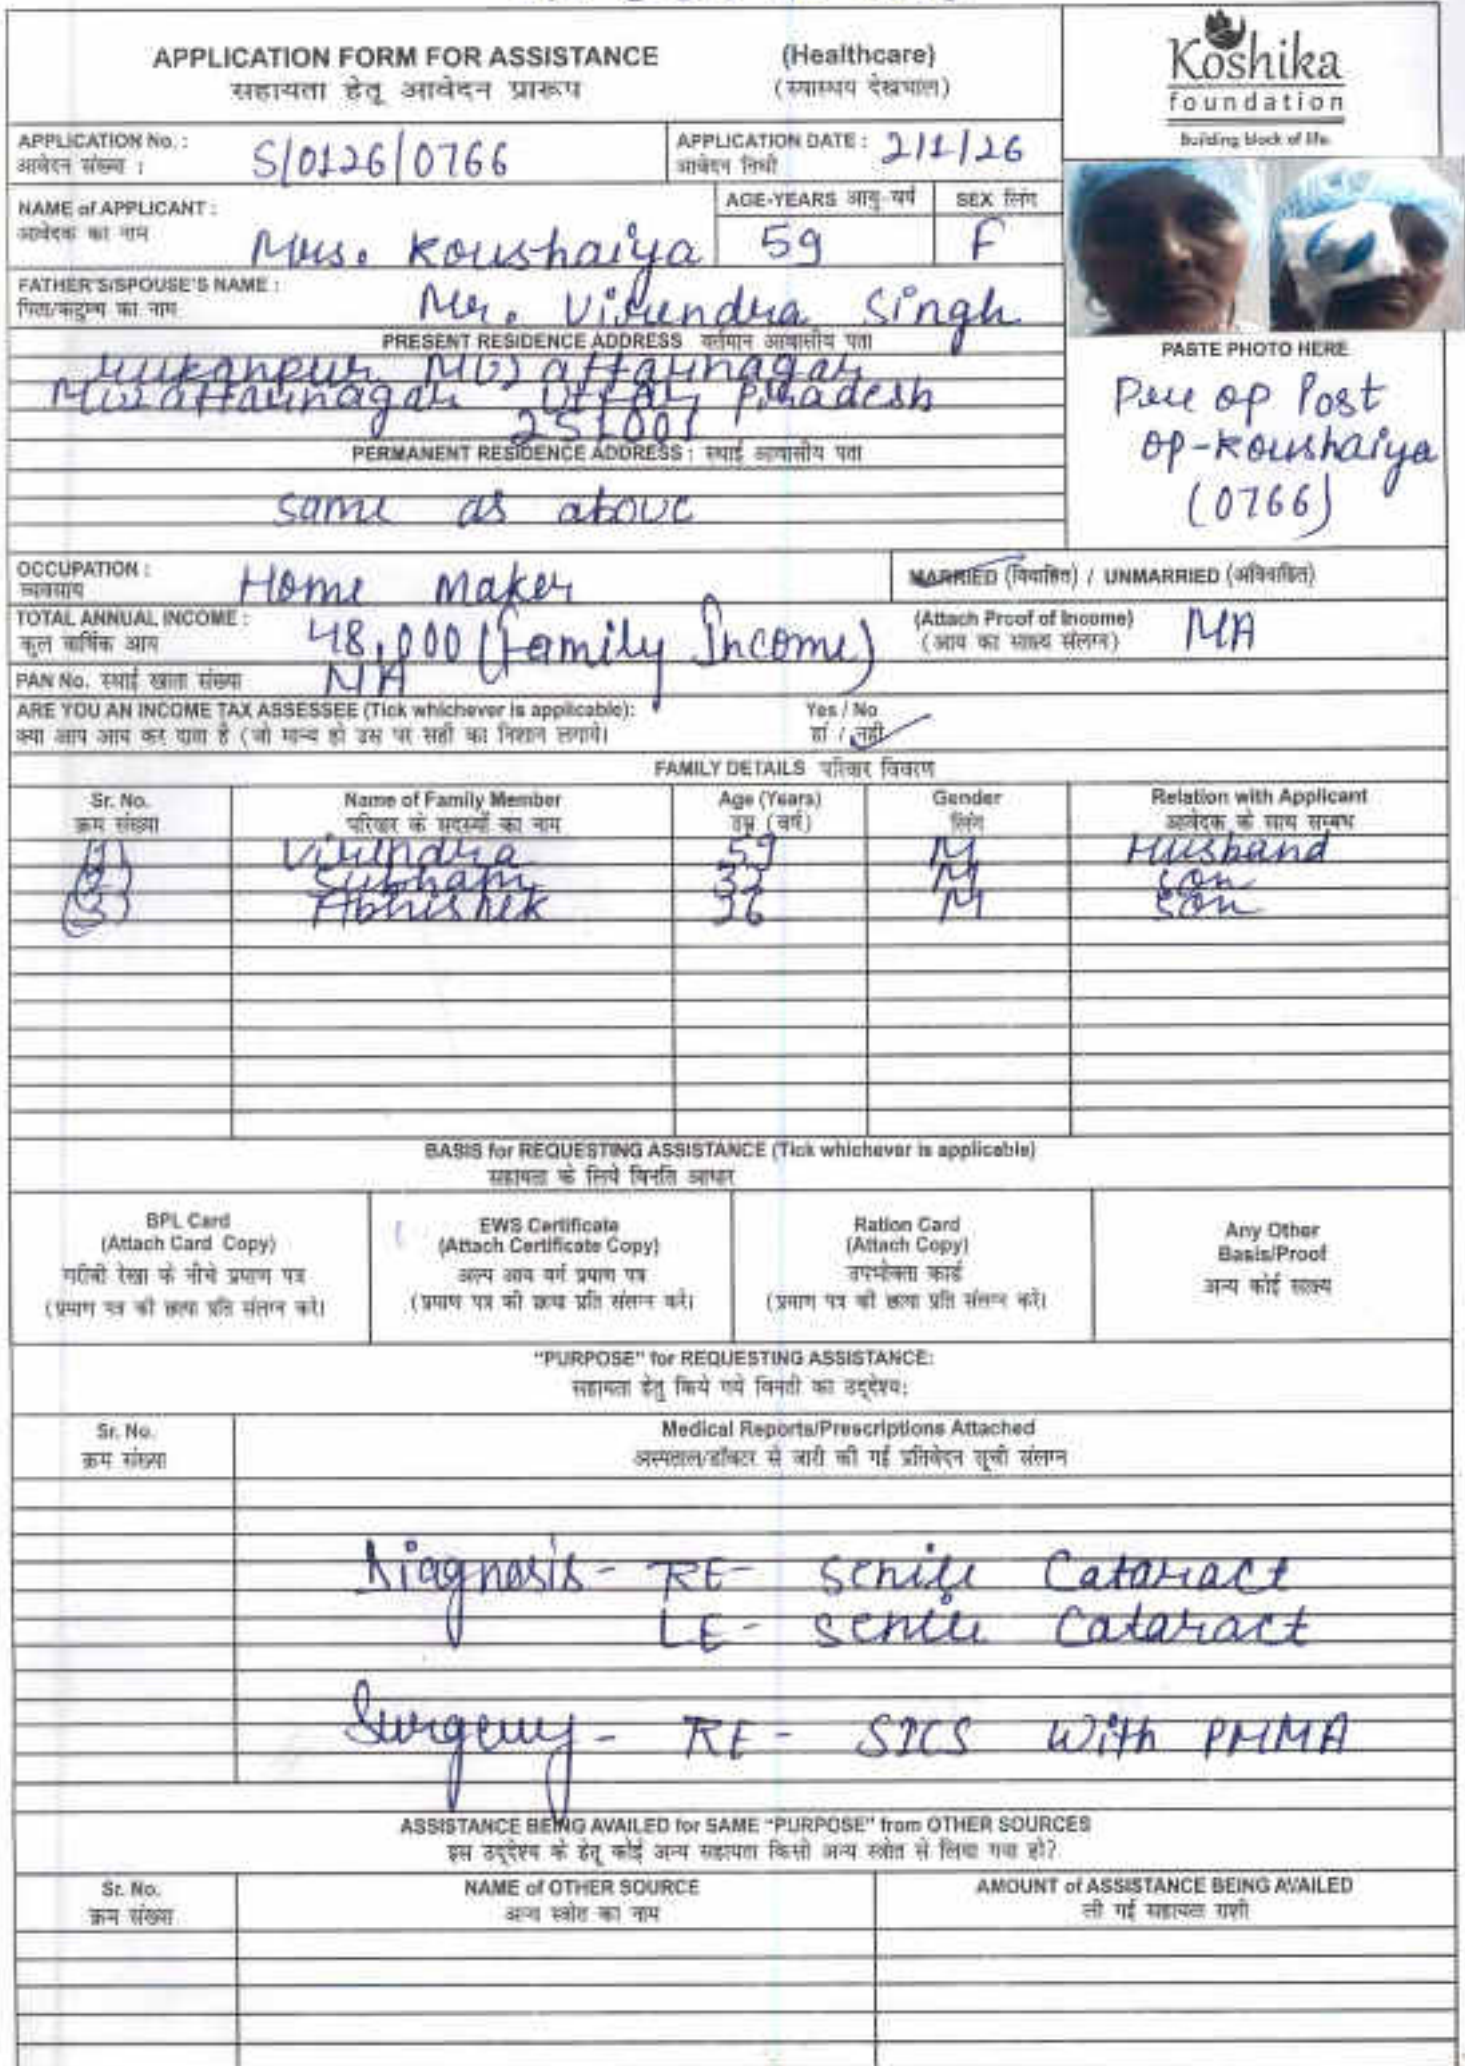 APPLICATION FORM FOR ASSISTANCE (Healthcare)
सहायता हेतू आवेदन प्रारूप (स्वास्थ्य देखभाल)
Koshika
foundation
Building block of life.
APPLICATION No. : S/0126/0766
आवेदन संख्या :
APPLICATION DATE : 2/1/26
आवेदन तिथी
NAME of APPLICANT : Mrs. Koushaiya
आवेदक का नाम
AGE-YEARS आयु-वर्ष 59
SEX लिंग F
FATHER'S/SPOUSE'S NAME : Mr. Virendra Singh
पिता/कटुम्ब का नाम
PRESENT RESIDENCE ADDRESS वर्तमान आवासीय पता
Muzaffarnagar
Muzaffarnagar Uttar Pradesh
251001
PERMANENT RESIDENCE ADDRESS : स्थाई आवासीय पता
same as above
PASTE PHOTO HERE
Pre op Post
op-Koushaiya
(0766)
OCCUPATION : Home Maker
व्यवसाय
MARRIED (विवाहित) / UNMARRIED (अविवाहित)
TOTAL ANNUAL INCOME : 48,000 (Family Income)
कुल वार्षिक आय
(Attach Proof of Income) NA
(आय का साक्ष्य संलग्न)
PAN No. स्थाई खाता संख्या NA
ARE YOU AN INCOME TAX ASSESSEE (Tick whichever is applicable): Yes / No
क्या आप आय कर दाता है (जो मान्य हो उस पर सही का निशान लगाये। हां / नही
FAMILY DETAILS परिवार विवरण
Sr. No. Name of Family Member Age (Years) Gender Relation with Applicant
क्रम संख्या परिवार के सदस्यों का नाम उम्र (वर्ष) लिंग आवेदक के साथ सम्बंध
(1) Virendra 59 M Husband
(2) Subham M son
(3) Abhishek 36 M son
BASIS for REQUESTING ASSISTANCE (Tick whichever is applicable)
सहायता के लिये विनति आधार
BPL Card
(Attach Card Copy)
गरीबी रेखा के नीचे प्रमाण पत्र
(प्रमाण पत्र की छाया प्रति संलग्न करें।
EWS Certificate
(Attach Certificate Copy)
अल्प आय वर्ग प्रमाण पत्र
(प्रमाण पत्र की छाया प्रति संलग्न करें।
Ration Card
(Attach Copy)
उपभोक्ता कार्ड
(प्रमाण पत्र की छाया प्रति संलग्न करें।
Any Other
Basis/Proof
अन्य कोई साक्ष्य
"PURPOSE" for REQUESTING ASSISTANCE:
सहायता हेतु किये गये विनती का उद्देश्य:
Sr. No. Medical Reports/Prescriptions Attached
क्रम संख्या अस्पताल/डॉक्टर से जारी की गई प्रतिवेदन सूची संलग्न
Diagnosis - RE - senile Cataract
LE - senile Cataract
Surgery - RE - SICS with PMMA
ASSISTANCE BEING AVAILED for SAME "PURPOSE" from OTHER SOURCES
इस उद्देश्य के हेतू कोई अन्य सहायता किसी अन्य स्त्रोत से लिया गया हो?
Sr. No. NAME of OTHER SOURCE AMOUNT of ASSISTANCE BEING AVAILED
क्रम संख्या अन्य स्त्रोत का नाम ली गई सहायता राशी